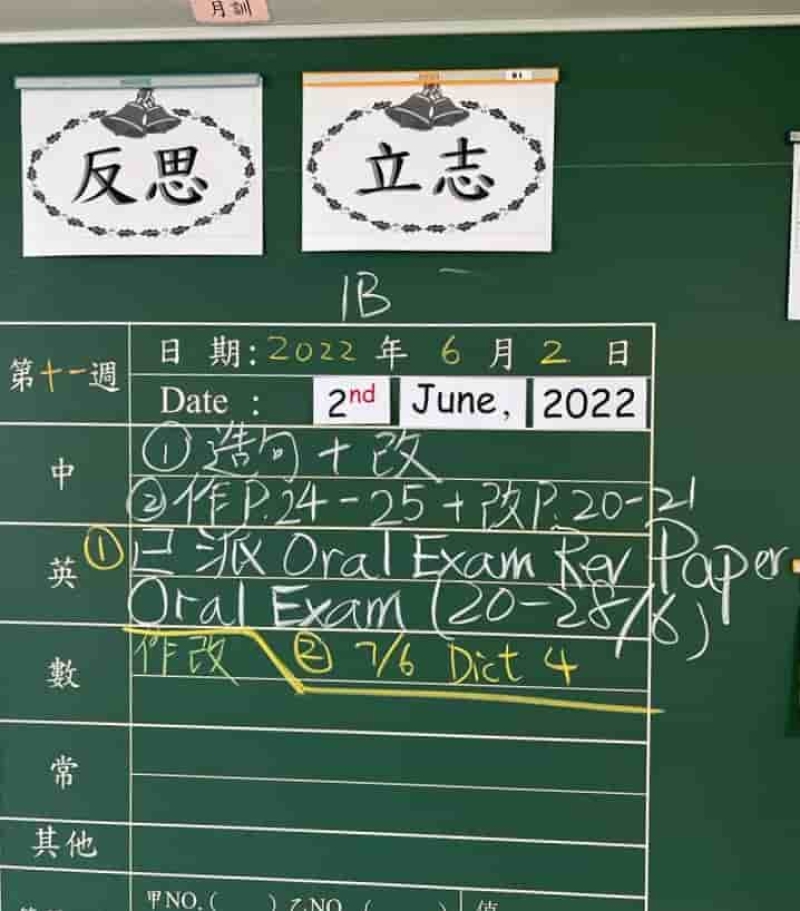 月訓
反思
立志
1B
第十一週
日 期:2022 年 6 月 2 日
Date : 2nd June, 2022
中
① 造句 + 改
② 作P.24-25 + 改P.20-21
英
① 已派 Oral Exam Rev Paper
Oral Exam (20-28/6)
數
作改 ② 7/6 Dict 4
常
其他
甲NO.( ) 乙NO.( ) 值